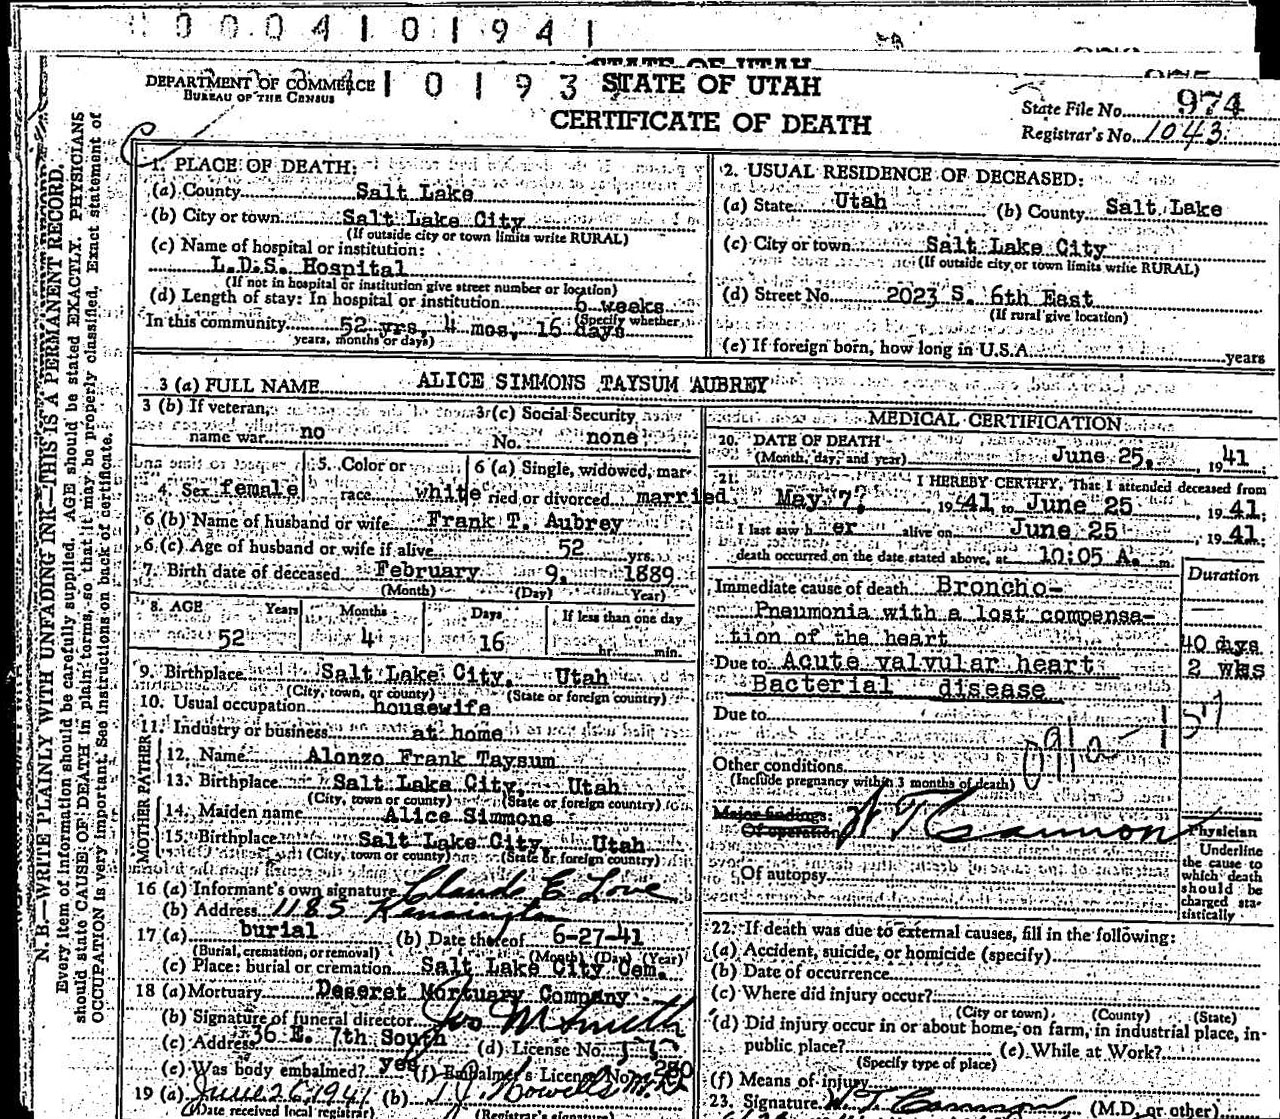 0 0 0 4 1 0 1 9 4 1
STATE OF UTAH
DEPARTMENT OF COMMERCE
BUREAU OF THE CENSUS
1 0 1 9 3
STATE OF UTAH
CERTIFICATE OF DEATH
State File No. 974
Registrar's No. 1043
N. B.—WRITE PLAINLY WITH UNFADING INK—THIS IS A PERMANENT RECORD.
Every item of information should be carefully supplied. AGE should be stated EXACTLY. PHYSICIANS
should state CAUSE OF DEATH in plain terms, so that it may be properly classified. Exact statement of
OCCUPATION is very important. See instructions on back of certificate.
1. PLACE OF DEATH:
(a) County Salt Lake
(b) City or town Salt Lake City
(If outside city or town limits write RURAL)
(c) Name of hospital or institution:
L.D.S. Hospital
(If not in hospital or institution give street number or location)
(d) Length of stay: In hospital or institution 6 weeks
(Specify whether
In this community 52 yrs, 4 mos, 16 days
years, months or days)
2. USUAL RESIDENCE OF DECEASED:
(a) State Utah (b) County Salt Lake
(c) City or town Salt Lake City
(If outside city or town limits write RURAL)
(d) Street No. 2023 S. 6th East
(If rural give location)
(e) If foreign born, how long in U.S.A. years
3 (a) FULL NAME ALICE SIMMONS TAYSUM AUBREY
3 (b) If veteran, name war no
3 (c) Social Security No. none
4. Sex female
5. Color or race white
6 (a) Single, widowed, married or divorced married
6 (b) Name of husband or wife Frank T. Aubrey
6 (c) Age of husband or wife if alive 52 yrs.
7. Birth date of deceased February 9, 1889
(Month) (Day) Year)
8. AGE Years Months Days If less than one day
52 4 16 hr. min.
9. Birthplace Salt Lake City, Utah
(City, town, or county) (State or foreign country)
10. Usual occupation housewife
11. Industry or business at home
FATHER
12. Name Alonzo Frank Taysum
13. Birthplace Salt Lake City, Utah
(City, town or county) (State or foreign country)
MOTHER
14. Maiden name Alice Simmons
15. Birthplace Salt Lake City, Utah
(City, town or county) (State or foreign country)
16 (a) Informant's own signature Claude E Love
(b) Address 1185 Kensington
17 (a) burial (b) Date thereof 6-27-41
(Burial, cremation, or removal) (Month) (Day) (Year)
(c) Place: burial or cremation Salt Lake City Cem.
18 (a) Mortuary Deseret Mortuary Company
(b) Signature of funeral director Jos M Smith
(c) Address 36 E. 7th South (d) License No.
(e) Was body embalmed? yes (f) Embalmer's License No. 280
19 (a) June 26, 1941 (b)
(Date received local registrar) (Registrar's signature)
MEDICAL CERTIFICATION
20. DATE OF DEATH
(Month, day, and year) June 25, 1941
21. I HEREBY CERTIFY, That I attended deceased from
May 7, 1941 to June 25, 1941
I last saw her alive on June 25, 1941
death occurred on the date stated above, at 10:05 A. m.
Duration
Immediate cause of death Broncho-
Pneumonia with a lost compensa-
tion of the heart 40 days
Due to Acute valvular heart 2 wks
Bacterial disease
Due to
Other conditions
(Include pregnancy within 3 months of death)
Major findings:
Of operation
Of autopsy
Physician
Underline
the cause to
which death
should be
charged sta-
tistically
22. If death was due to external causes, fill in the following:
(a) Accident, suicide, or homicide (specify)
(b) Date of occurrence
(c) Where did injury occur?
(City or town) (County) (State)
(d) Did injury occur in or about home, on farm, in industrial place, in
public place? (e) While at Work?
(Specify type of place)
(f) Means of injury
23. Signature (M.D., or other)